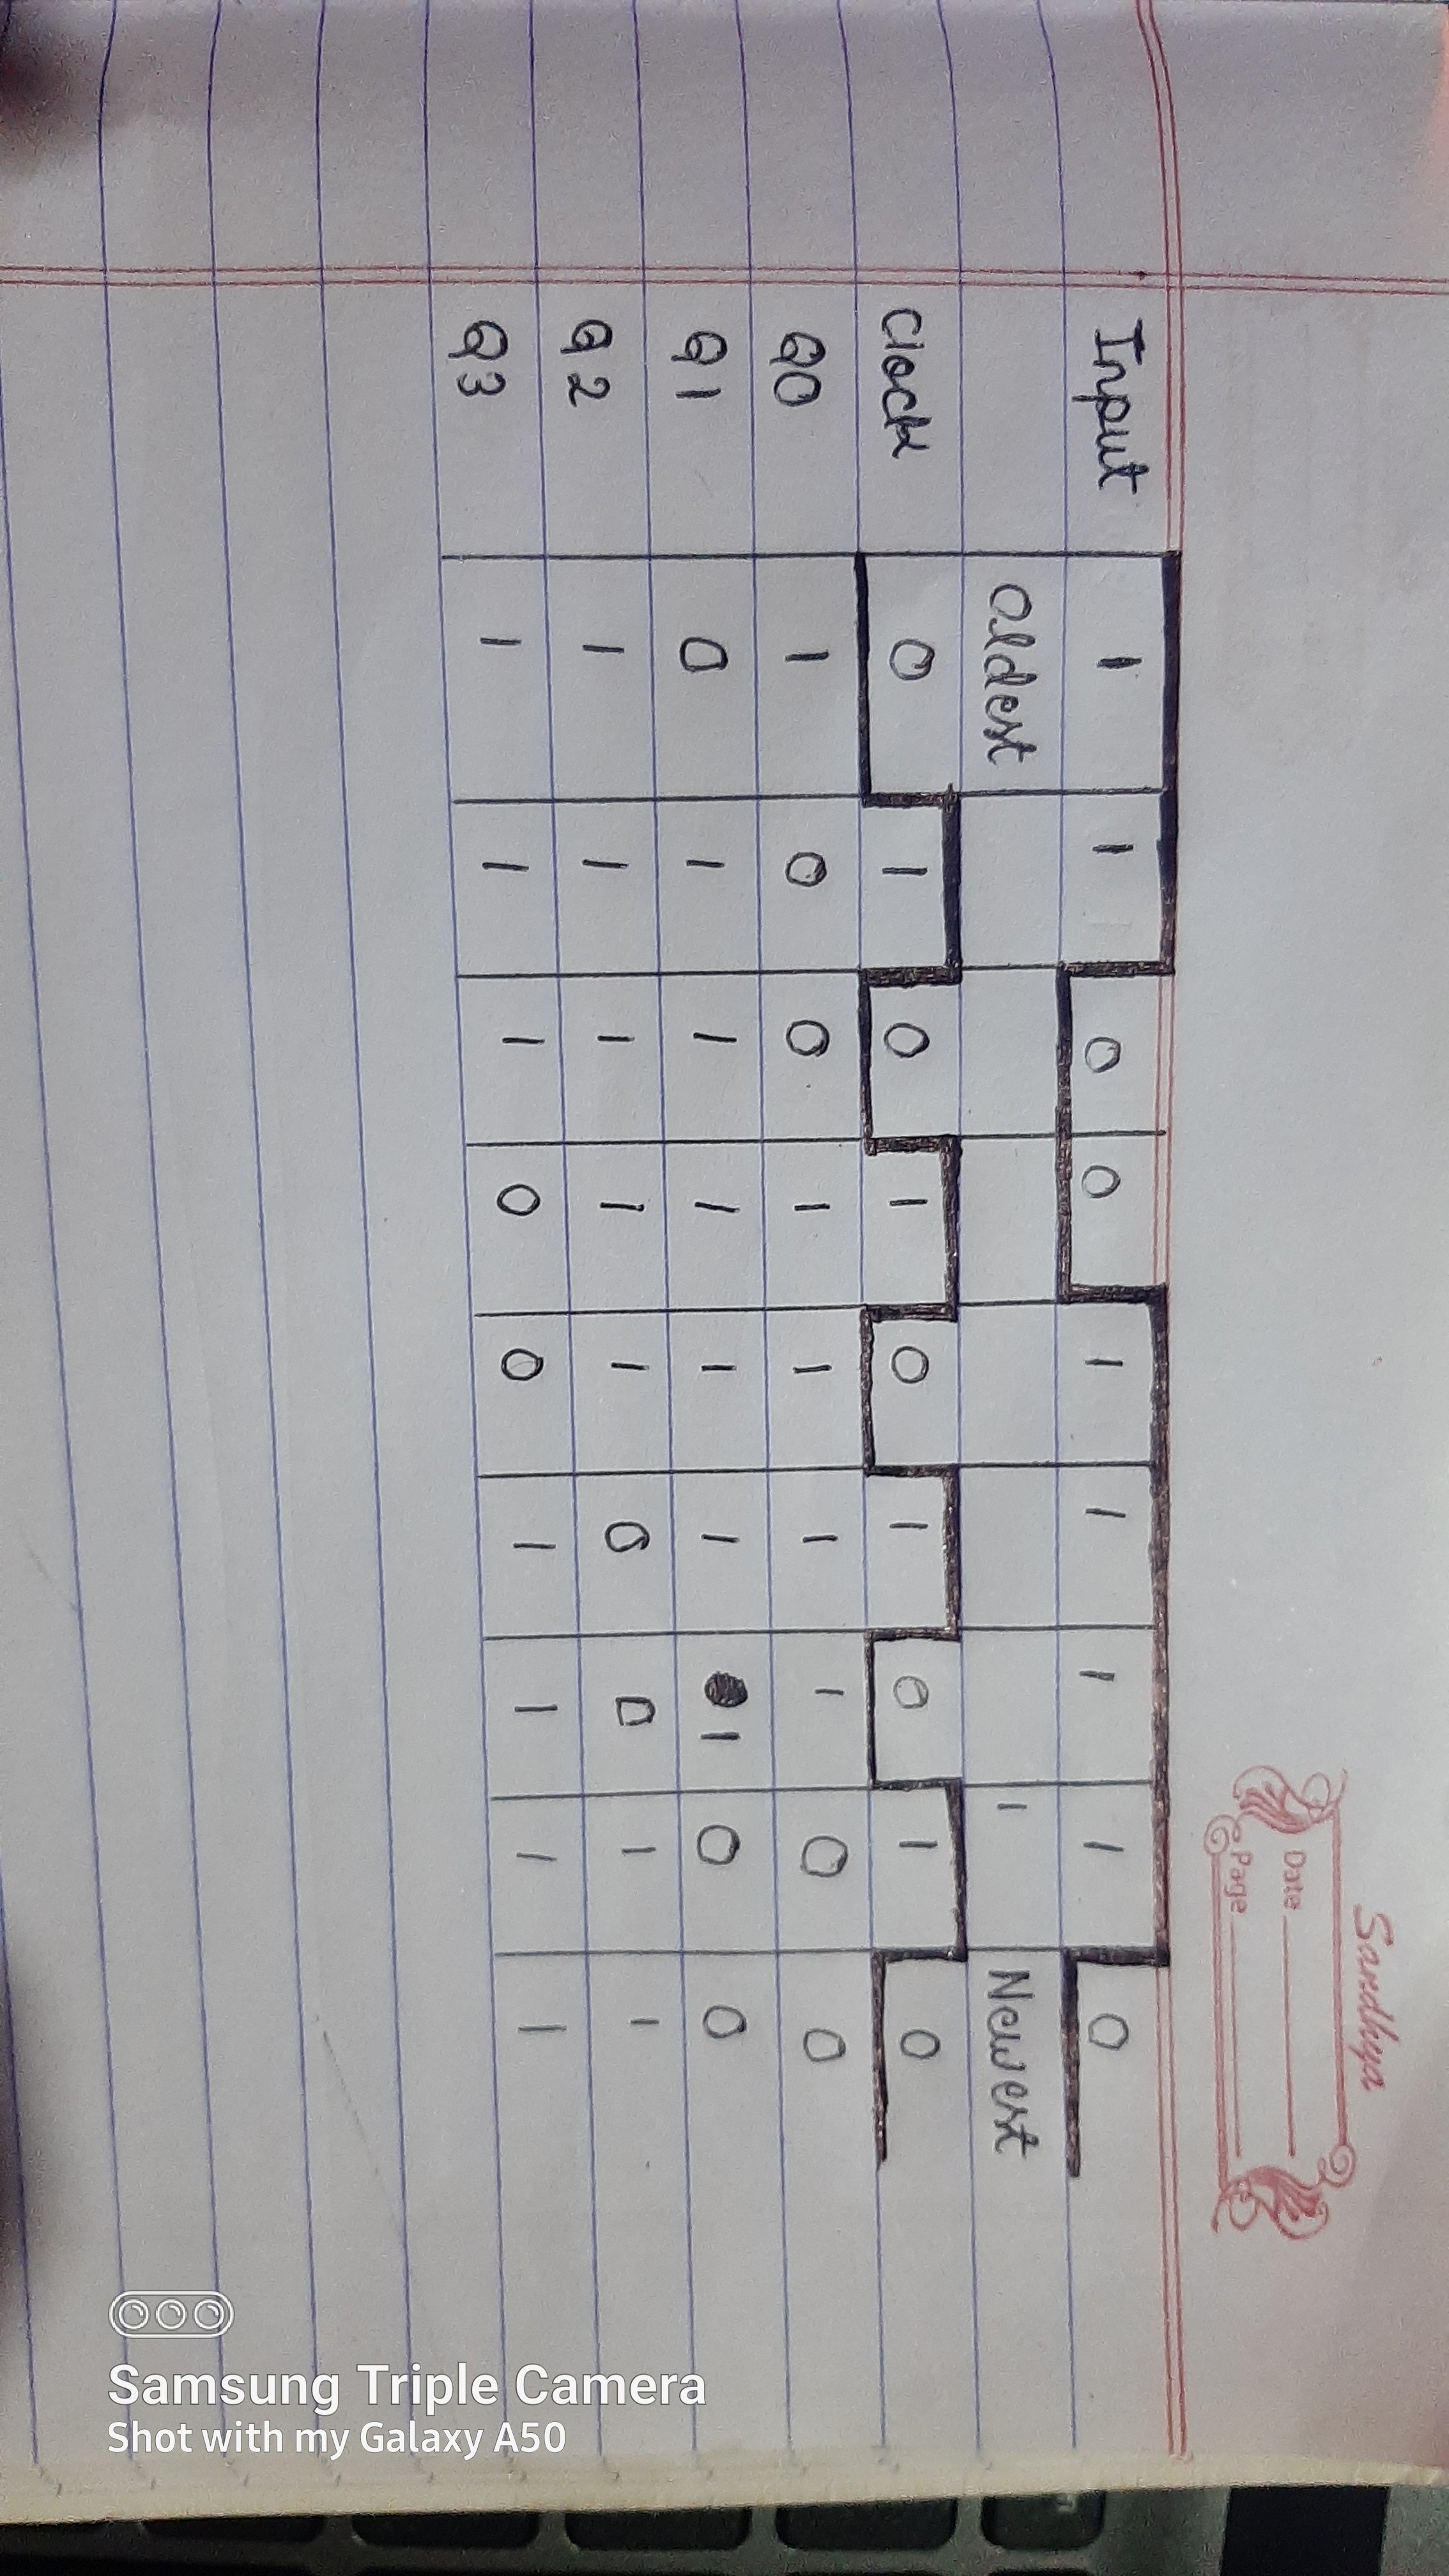 Sandhya
Date
Page
Input 1 1 0 0 1 1 1 1 0
Oldest 1 Newest
Clock 0 1 0 1 0 1 0 1 0
Q0 1 0 0 1 1 1 1 0 0
Q1 0 1 1 1 1 1 1 0 0
Q2 1 1 1 1 1 0 0 1 1
Q3 1 1 1 0 0 1 1 1 1
Samsung Triple Camera
Shot with my Galaxy A50